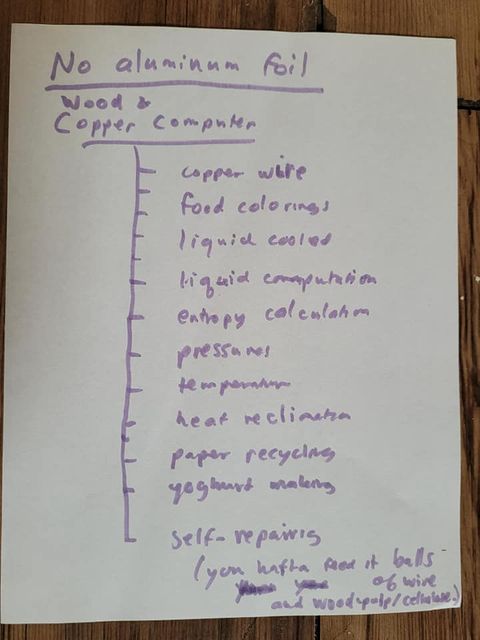 No aluminum foil
Wood &
Copper Computer
copper wire
food colorings
liquid cooled
liquid computation
entropy calculation
pressures
temperature
heat reclimation
paper recycling
yoghurt making
self-repairing
(you hafta feed it balls
of wire
and wood pulp/cellulose.)